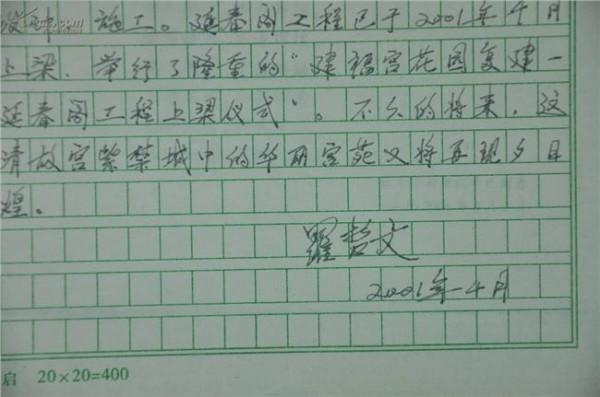 施工。延春阁工程已于2001年4月
上梁，举行了隆重的“建福宫花园复建一
延春阁工程上梁仪式”。不久的将来，这
清故宫紫禁城中的华丽宫苑又将再现夕日
煌。
罗哲文
2001年4月
启 20×20=400